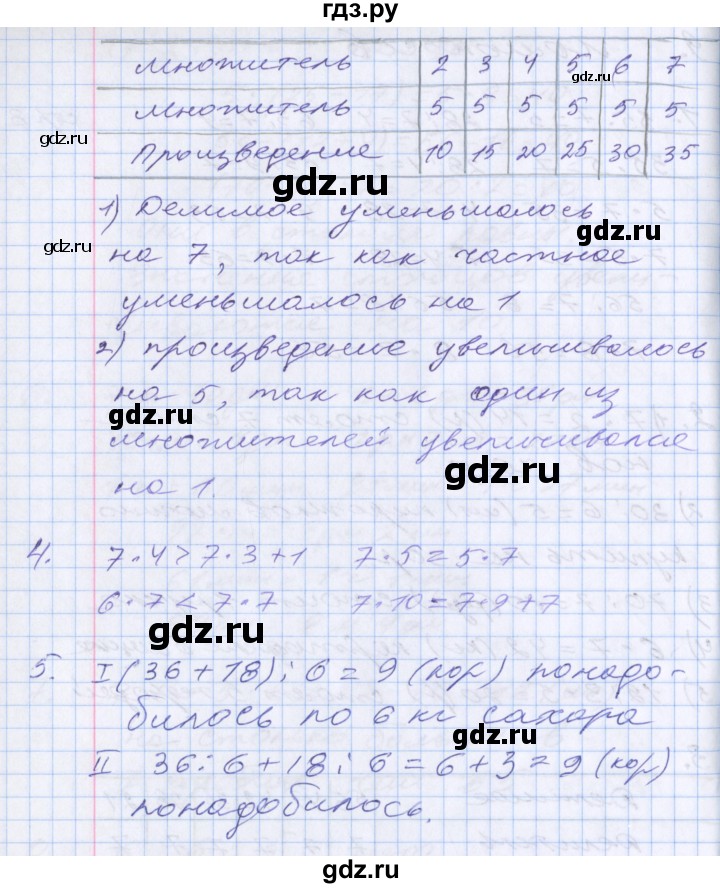 гдз.ру
множитель 2 3 4 5 6 7
gdz.ru
множитель 5 5 5 5 5 5
gdz.ru
Произведение 10 15 20 25 30 35
gdz.ru
1) Делимое уменьшалось
gdz.ru
gdz.ru
на 7, так как частное
уменьшалось на 1
2) произведение увеличивалось
на 5, так как один из
gdz.ru
множителей увеличивался
gdz.ru
на 1.
4. 7·4>7·3+1 7·5=5·7
6·7<7·7 7·10=7·9+7
gdz.ru
5. I (36+18):6=9 (кор) понадо-
билось по 6 кг сахара
gdz.ru
II 36:6+18:6=6+3=9 (кор)
понадобилось.
gdz.ru
gdz.ru